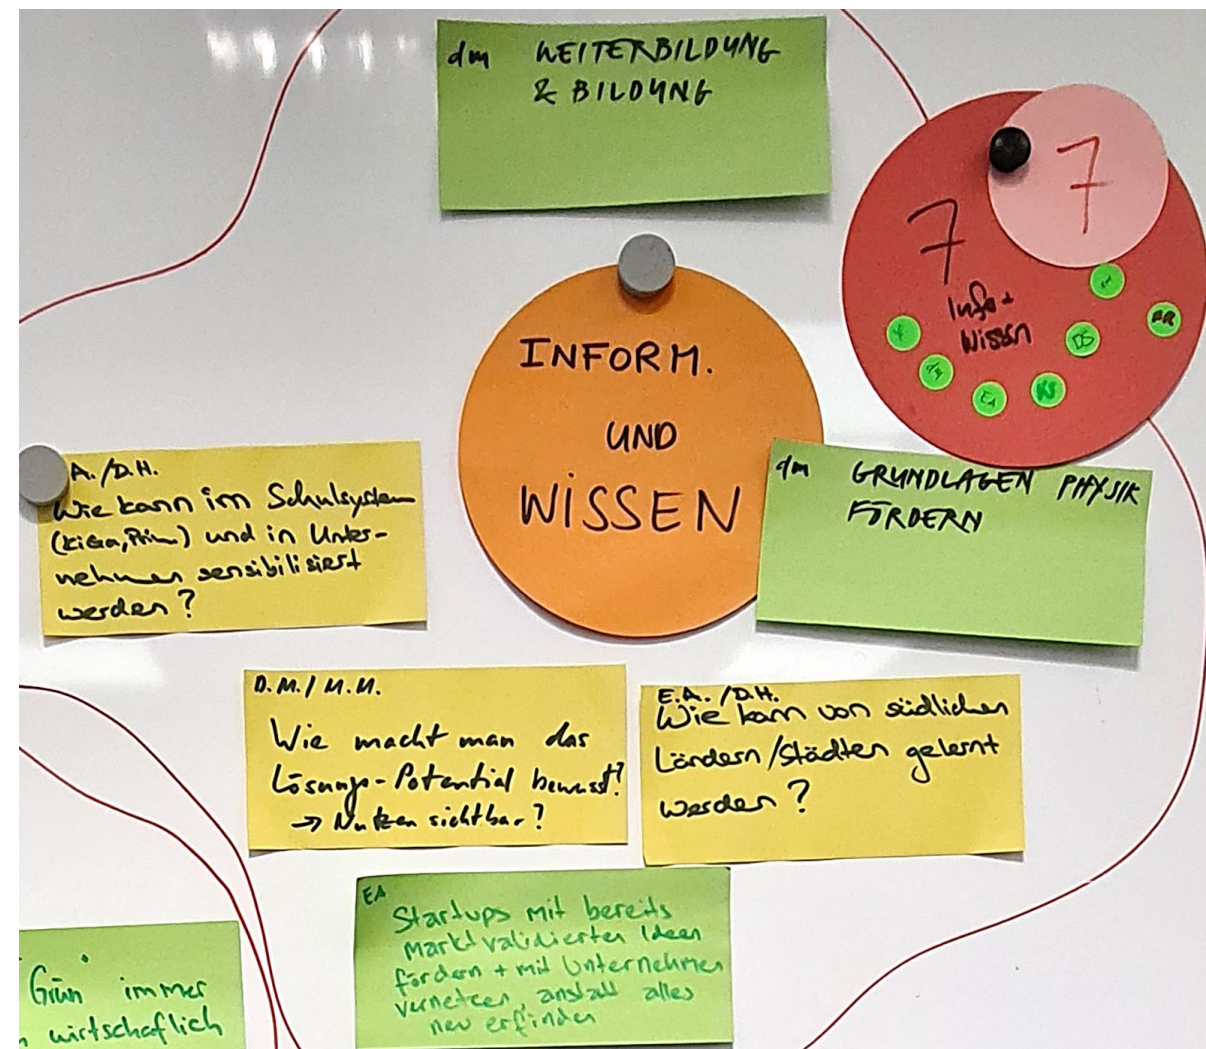 dm WEITERBILDUNG
& BILDUNG
7
7
Info +
Wissen
DS
EA
KS
INFORM.
UND
WISSEN
dm GRUNDLAGEN PHYSIK
FÖRDERN
A./D.H.
Wie kann im Schulsystem
(KiGa, Prim) und in Unter-
nehmen sensibilisiert
werden?
D.M./M.M.
Wie macht man das
Lösungs-Potential bewusst?
→ Nutzen sichtbar?
E.A./D.H.
Wie kann von südlichen
Ländern/Städten gelernt
werden?
EA
Startups mit bereits
marktvalidierten Ideen
fördern + mit Unternehmen
vernetzen, anstatt alles
neu erfinden
"Grün" immer
wirtschaflich